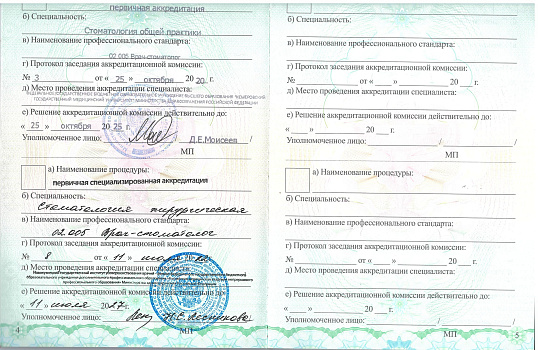 первичная аккредитация
б) Специальность:
Стоматология общей практики
в) Наименование профессионального стандарта:
02.005 Врач-стоматолог
г) Протокол заседания аккредитационной комиссии:
№ 3 от « 25 » октября 20 20 г.
д) Место проведения аккредитации специалиста:
е) Решение аккредитационной комиссии действительно до:
« 25 » октября 20 25 г.
Уполномоченное лицо: / Д.Е.Моисеев /
МП
а) Наименование процедуры:
первичная специализированная аккредитация
б) Специальность:
Стоматология хирургическая
в) Наименование профессионального стандарта:
02.005 Врач-стоматолог
г) Протокол заседания аккредитационной комиссии:
№ 8 от « 11 » июля 20
д) Место проведения аккредитации специалиста:
е) Решение аккредитационной комиссии действительно до:
« 11 » июля 20 г.
Уполномоченное лицо:
МП
4
б) Специальность:
в) Наименование профессионального стандарта:
г) Протокол заседания аккредитационной комиссии:
№ от « » 20 г.
д) Место проведения аккредитации специалиста:
е) Решение аккредитационной комиссии действительно до:
« » 20 г.
Уполномоченное лицо: / /
МП
а) Наименование процедуры:
б) Специальность:
в) Наименование профессионального стандарта:
г) Протокол заседания аккредитационной комиссии:
№ от « » 20 г.
д) Место проведения аккредитации специалиста:
е) Решение аккредитационной комиссии действительно до:
« » 20 г.
Уполномоченное лицо: / /
МП
5